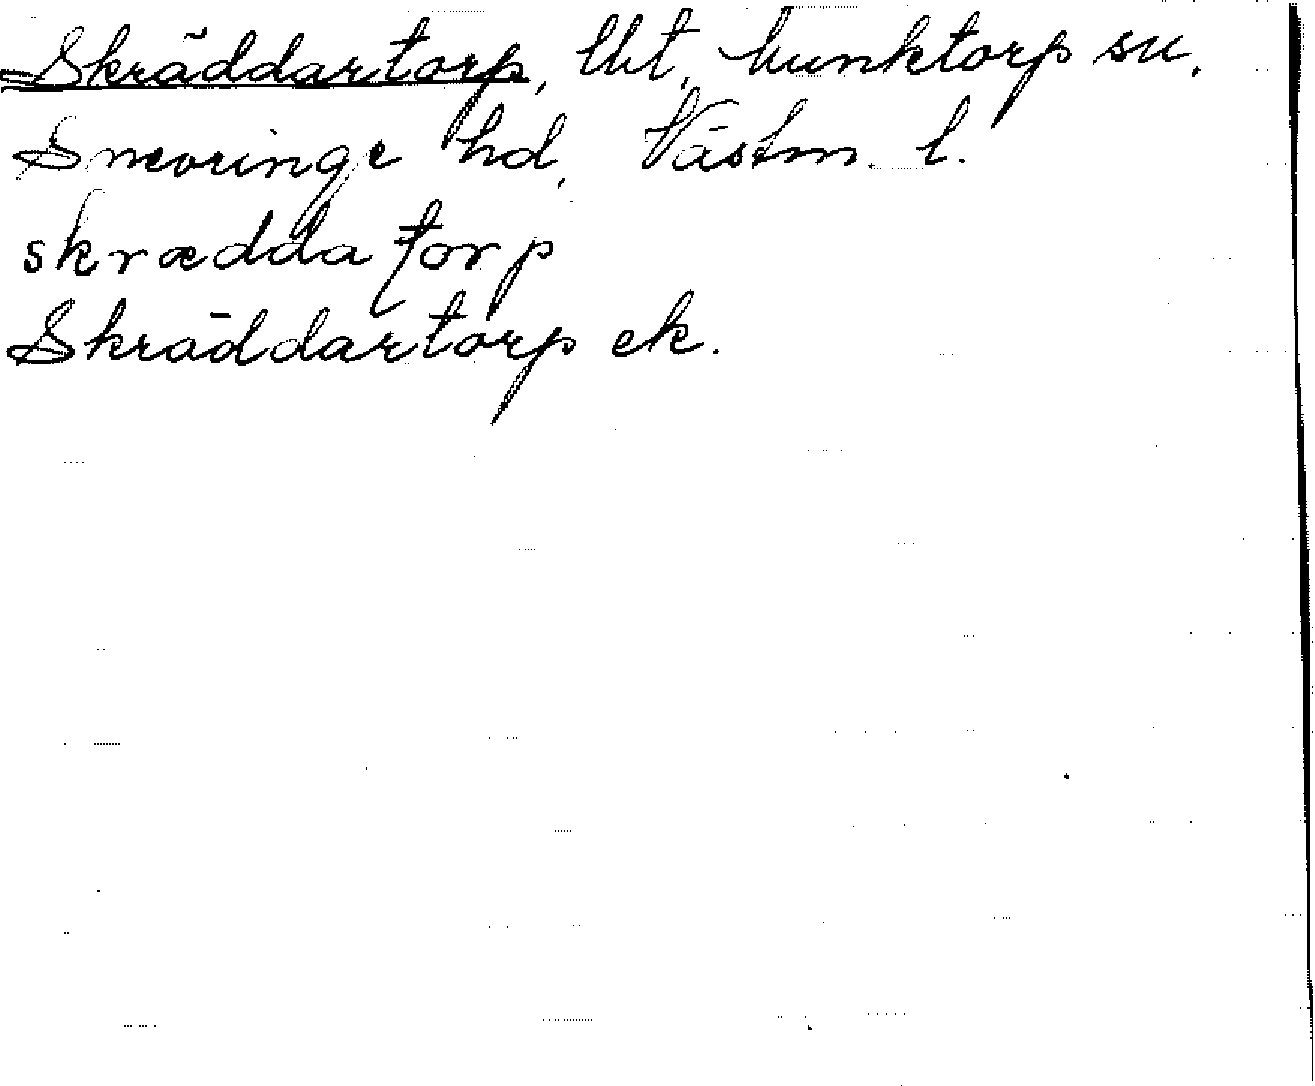 Skräddartorp, lht, Munktorp sn.
Snevringe hd, Västm. l.
skrædda torp
Skräddartorp ek.